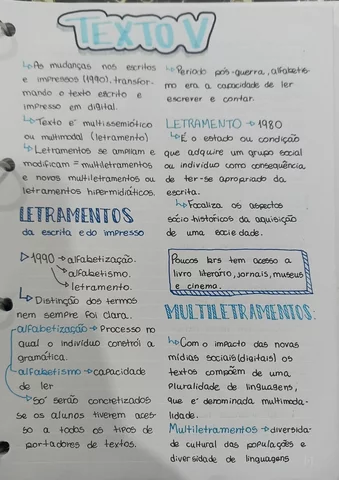 TEXTO V
↳ As mudanças nos escritos
e impressos (1990), transfor-
mando o texto escrito e
impresso em digital.
↳ Texto é multissemiótico
ou multimodal (letramento)
↳ Letramentos se ampliam e
modificam = multiletramentos
e novos multiletramentos ou
letramentos hipermidiáticos.
LETRAMENTOS
da escrita e do impresso
▷ 1990 → alfabetização.
→ alfabetismo.
→ letramento.
↳ Distinção dos termos
nem sempre foi clara.
alfabetização → Processo no
qual o indivíduo constrói a
gramática.
alfabetismo → capacidade
de ler
→ Só serão concretizados
se os alunos tiverem aces-
so a todos os tipos de
portadores de textos.
↳ Período pós-guerra, alfabetis-
mo era a capacidade de ler
escrever e contar.
LETRAMENTO → 1980
↳ É o estado ou condição
que adquire um grupo social
ou indivíduo como consequência
de ter-se apropriado da
escrita.
↳ Focaliza os aspectos
sócio-históricos da aquisição
de uma sociedade.
Poucos lares tem acesso a
livro literário, jornais, museus
e cinema.
MULTILETRAMENTOS:
↳ Com o impacto das novas
mídias sociais (digitais) os
textos compõem de uma
pluralidade de linguagens,
que é denominada multimoda-
lidade.
Multiletramentos → diversida-
de cultural das populações e
diversidade de linguagens